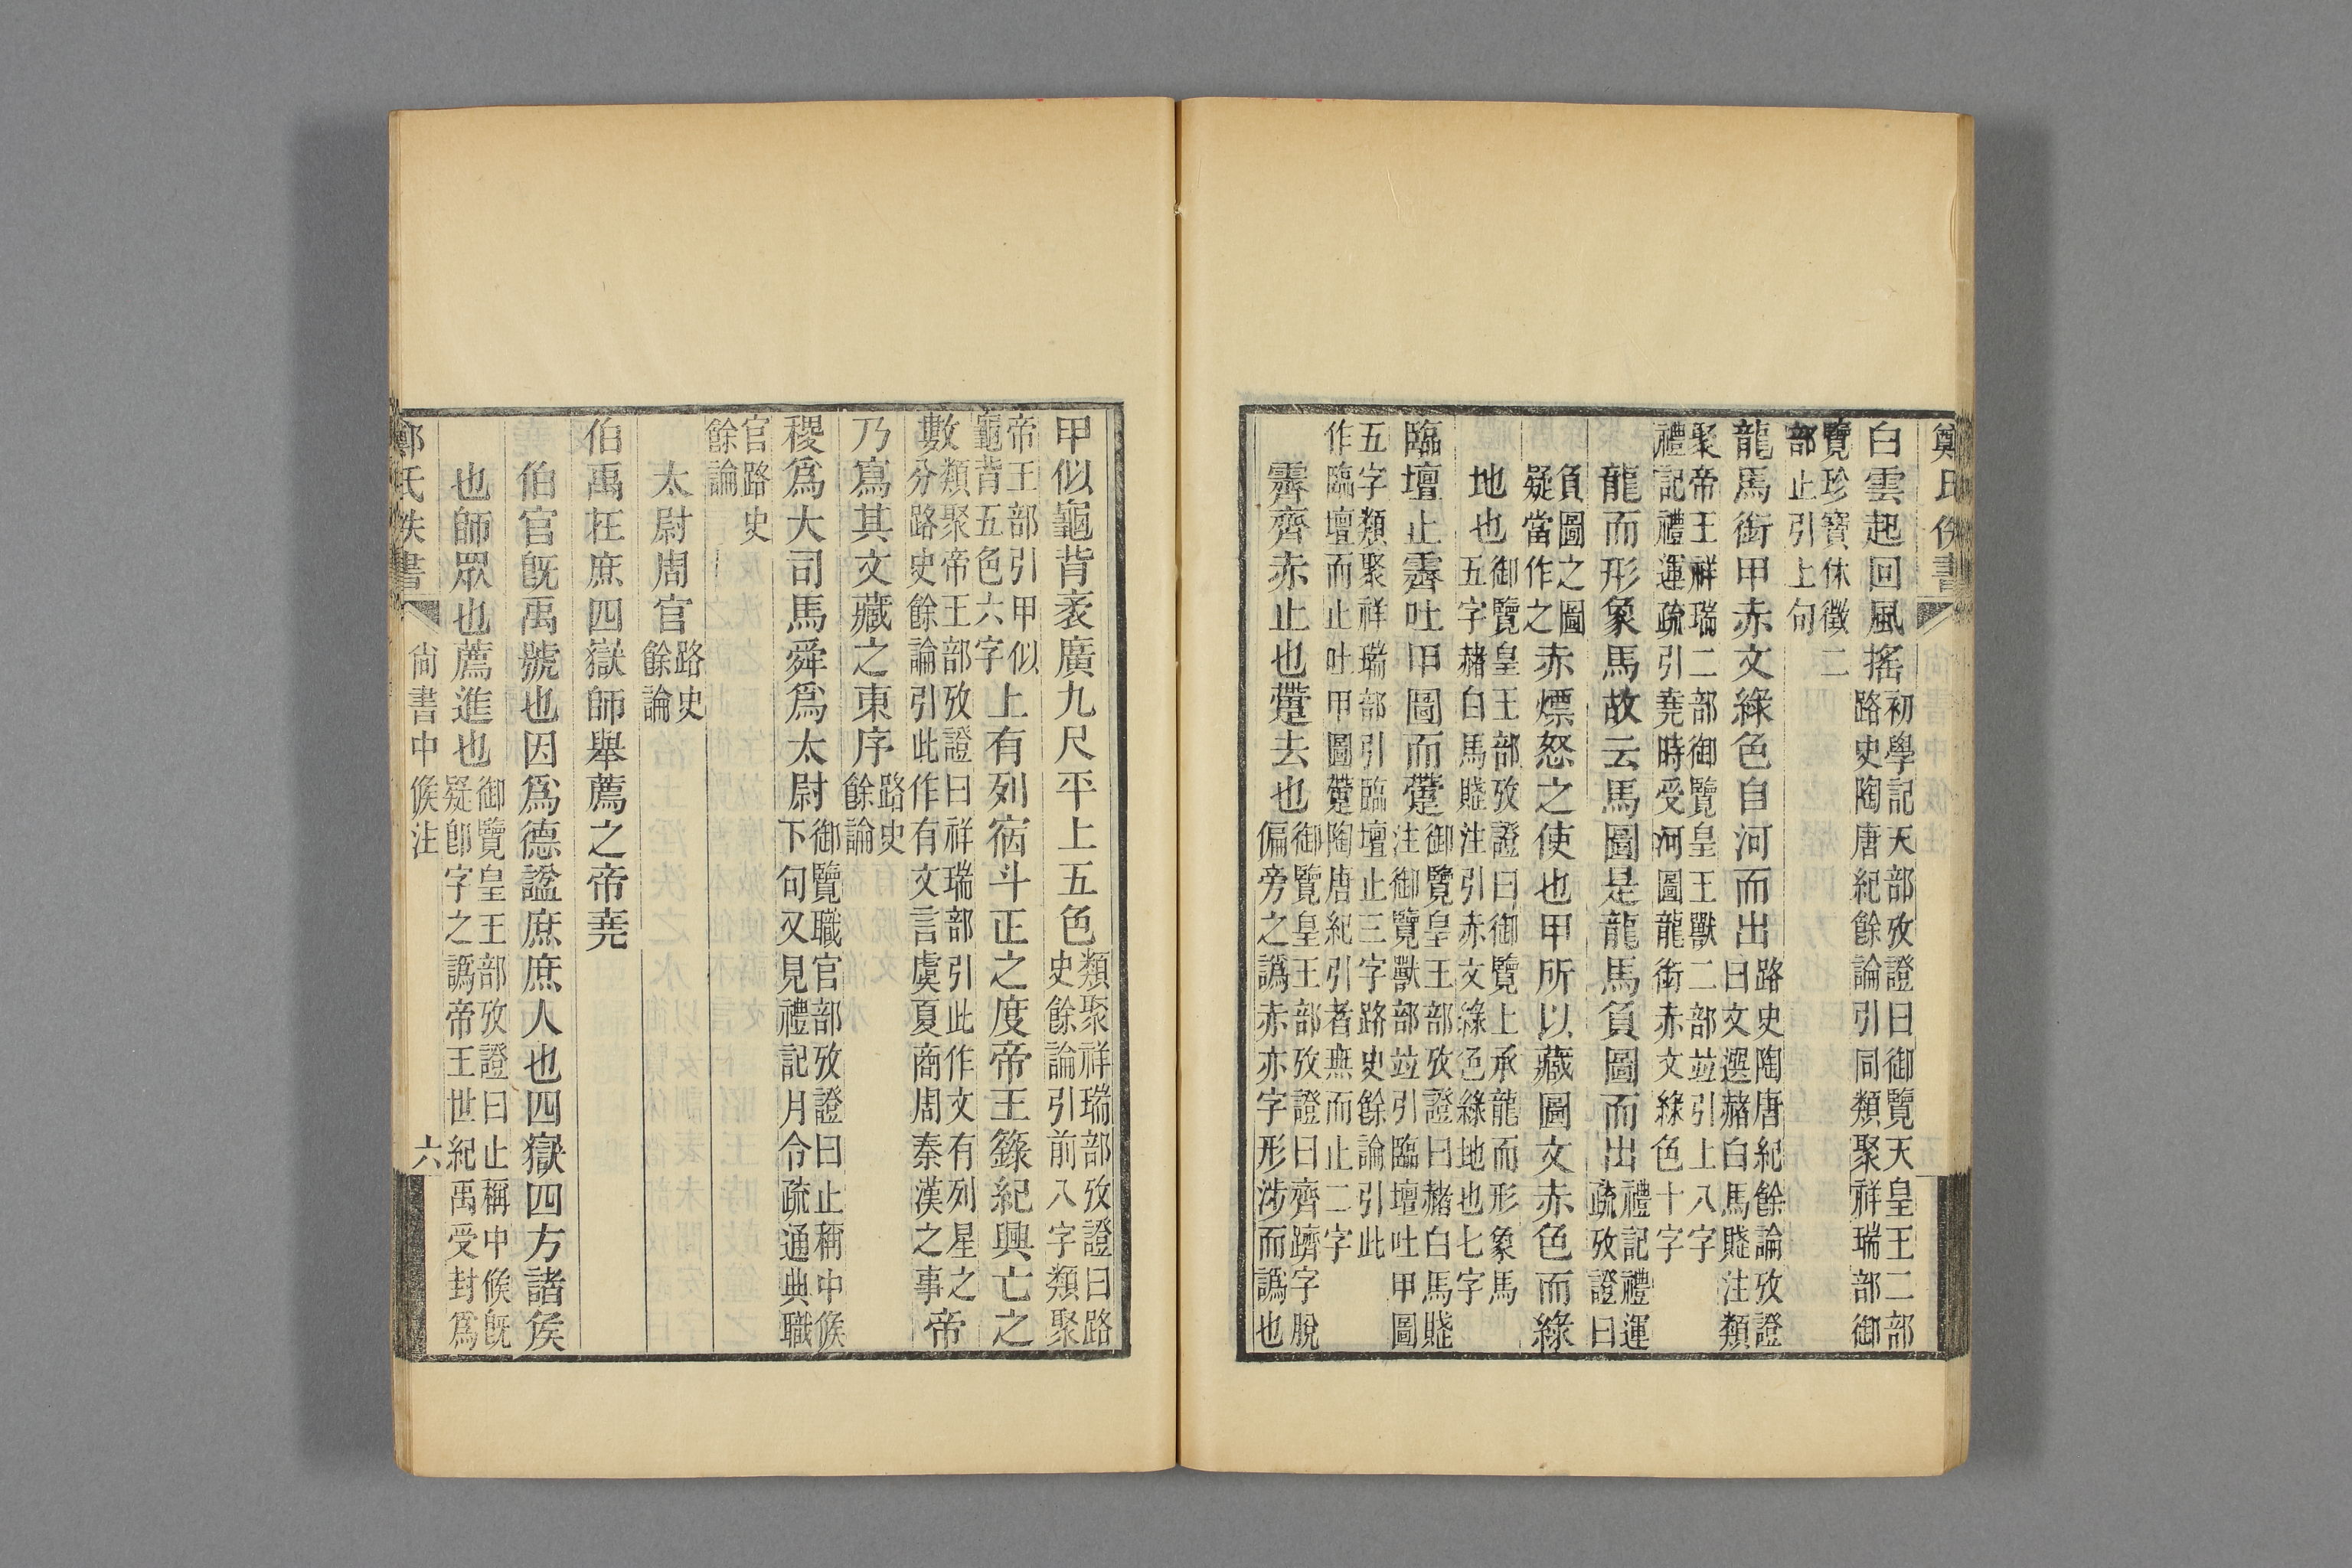 鄭氏佚書
白雲起回風搖初學記天部攷證曰御覽天皇王二部
路史陶唐紀餘論引同類聚祥瑞部御
覽珍寶休徵二
部止引上句
龍馬銜甲赤文綠色自河而出路史陶唐紀餘論攷證
曰文選赭白馬賦注類
聚帝王祥瑞二部御覽皇王獸二部竝引上八字
禮記禮運疏引堯時受河圖龍銜赤文綠色十字
龍而形象馬故云馬圖是龍馬負圖而出禮記禮運
疏攷證曰
負圖之圖
疑當作之赤熛怒之使也甲所以藏圖文赤色而綠
地也御覽皇王部攷證曰御覽上承龍而形象馬
五字赭白馬賦注引赤文綠色綠地也七字
臨壇止霽吐甲圖而躠御覽皇王部攷證曰赭白馬賦
注御覽獸部竝引臨壇吐甲圖
五字類聚祥瑞部引臨壇止三字路史餘論引此
作臨壇而止吐甲圖躠陶唐紀引者無而止二字
霽齊赤止也躠去也御覽皇王部攷證曰齊躋字脫
偏旁之譌赤亦字形涉而譌也
甲似龜背袤廣九尺平上五色類聚祥瑞部攷證曰路
史餘論引前八字類聚
帝王部引甲似
龜背五色六字上有列宿斗正之度帝王籙紀興亡之
數類聚帝王部攷證曰祥瑞部引此作文有列星之
分路史餘論引此作有文言虞夏商周秦漢之事帝
乃寫其文藏之東序路史
餘論
稷爲大司馬舜爲太尉御覽職官部攷證曰止稱中候
下句又見禮記月令疏通典職
官路史
餘論
太尉周官路史
餘論
伯禹在庶四嶽師舉薦之帝堯
伯官旣禹號也因爲德諡庶庶人也四嶽四方諸矦
也師眾也薦進也御覽皇王部攷證曰止稱中候旣
疑卽字之譌帝王世紀禹受封爲
鄭氏佚書
尙書中候注
六